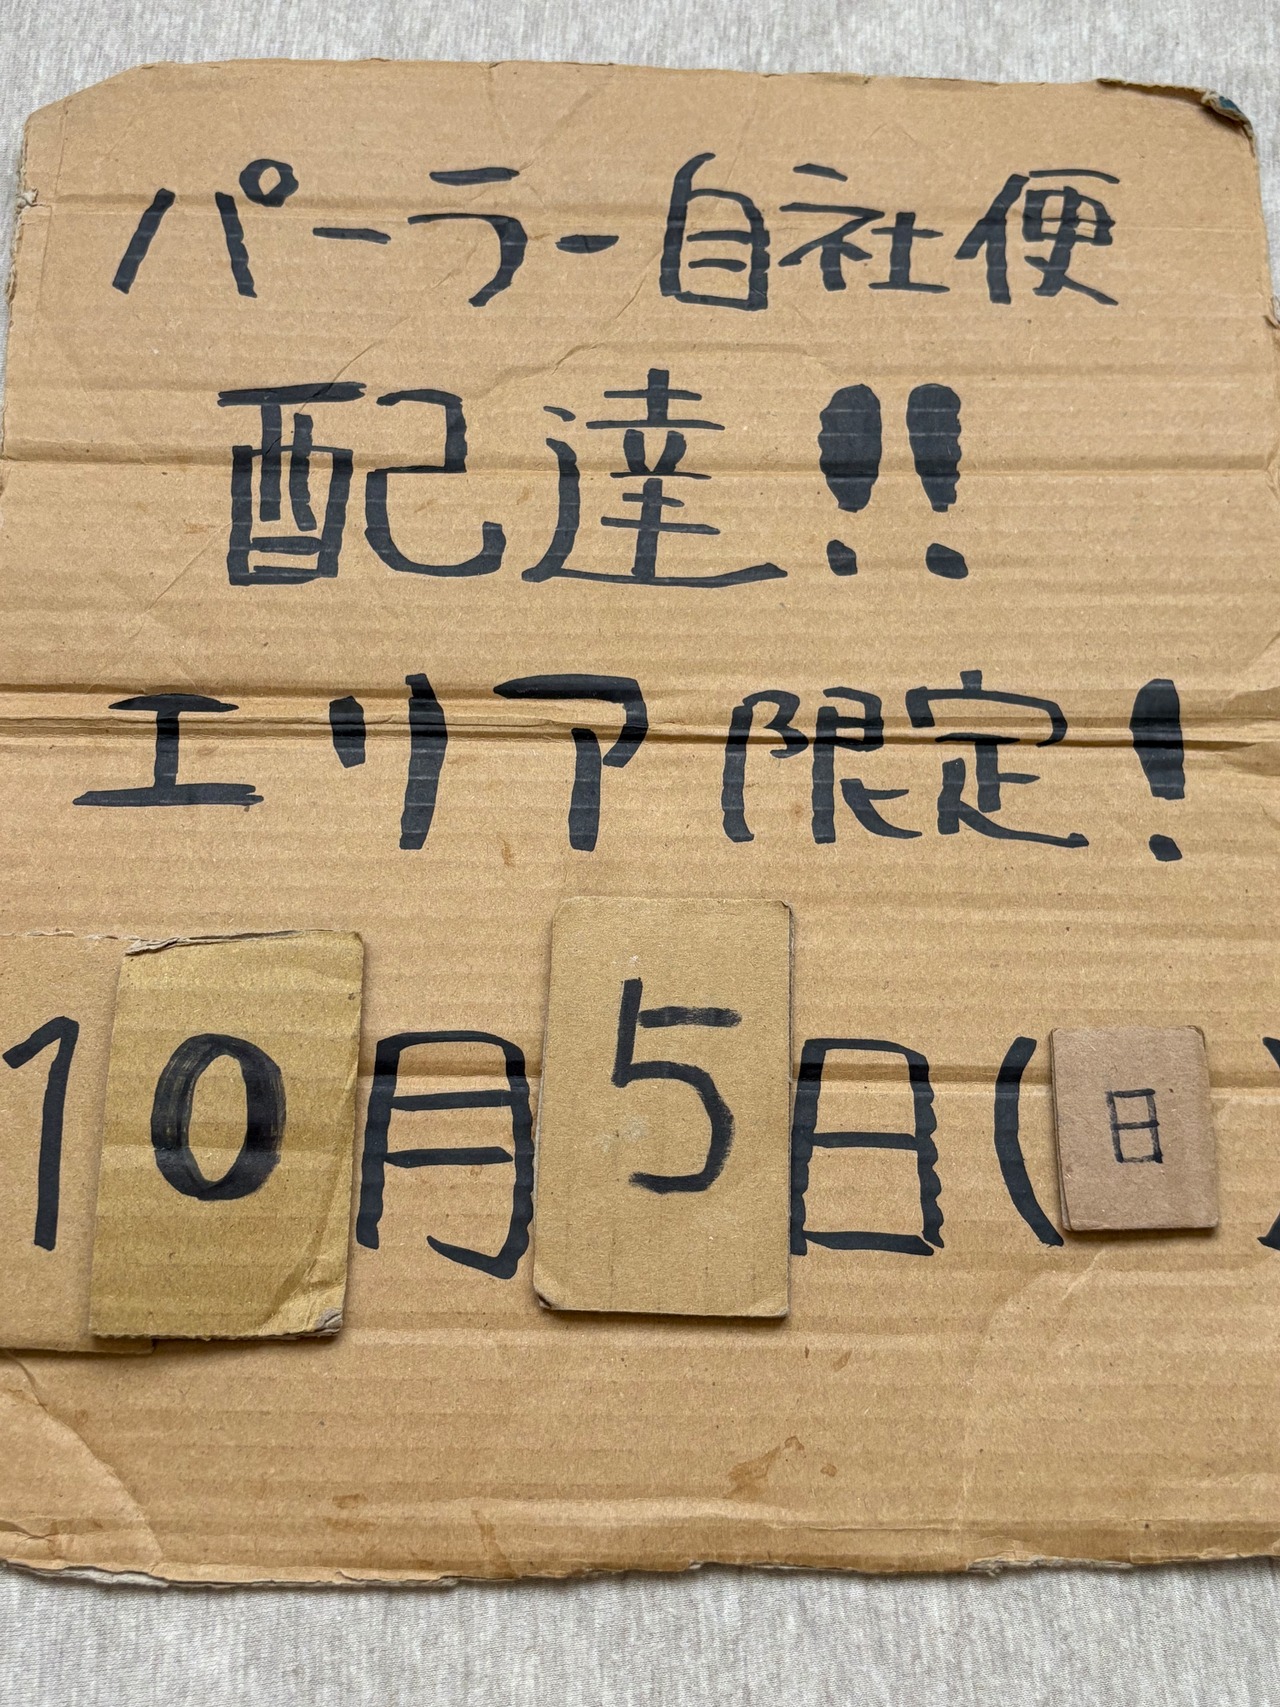 パーラー自社便
配達!!
エリア限定!
10月5日(日)